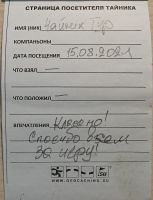 СТРАНИЦА ПОСЕТИТЕЛЯ ТАЙНИКА
ИМЯ (НИК) Чайник Тур
КОМПАНЬОНЫ
ДАТА ПОСЕЩЕНИЯ 15.08.2021
ЧТО ВЗЯЛ –
ЧТО ПОЛОЖИЛ –
ВПЕЧАТЛЕНИЯ Классно!
Спасибо Всем
за игру!
WWW.GEOCACHING.SU